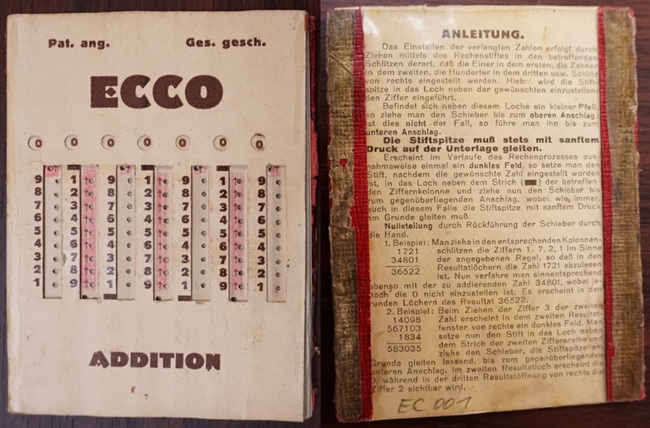 Pat. ang. Ges. gesch.
ECCO
0 0 0 0 0 0 0
9 1 9 1 9 1 9
8 2 8 2 8 2 8
7 3 7 3 7 3 7
6 4 6 4 6 4 6
5 5 5 5 5 5 5
4 6 4 6 4 6 4
3 7 3 7 3 7 3
2 8 2 8 2 8 2
1 9 1 9 1 9 1
ADDITION
ANLEITUNG.
Das Einstellen der verlangten Zahlen erfolgt durch
Ziehen mittels des Rechenstiftes in den betreffenden
Schlitzen derart, daß die Einer in dem ersten, die Zehner
in dem zweiten, die Hunderter in dem dritten usw. Schlitz
von rechts eingestellt werden. Hiebei wird die Stift-
spitze in das Loch neben der gewünschten einzustellen-
den Ziffer eingeführt.
Befindet sich neben diesem Loche ein kleiner Pfeil,
so ziehe man den Schieber bis zum oberen Anschlag;
ist dies nicht der Fall, so führe man ihn bis zum
unteren Anschlag.
Die Stiftspitze muß stets mit sanftem
Druck auf der Unterlage gleiten.
Erscheint im Verlaufe des Rechenprozesses aus-
nahmsweise einmal ein dunkles Feld, so setze man den
Stift, nachdem die gewünschte Zahl eingestellt worden
ist, in das Loch neben dem Strich ( ) der betreffen-
den Ziffernkolonne und ziehe nun den Schieber bis
zum gegenüberliegenden Anschlag, wobei, wie immer,
auch in diesem Falle die Stiftspitze mit sanftem Druck
am Grunde gleiten muß.
Nullstellung durch Rückführung der Schieber durch
die Hand.
1. Beispiel: Man ziehe in den entsprechenden Kolonnen-
1721 schlitzen die Ziffern 1, 7, 2, 1 im Sinne
34801 der angegebenen Regel, so daß in den
36522 Resultatlöchern die Zahl 1721 abzulesen
ist. Nun verfahre man sinnentsprechend
ebenso mit der zu addierenden Zahl 34801, wobei je-
doch die 0 nicht einzustellen ist. Es erscheint in den
runden Löchern das Resultat 36522.
2. Beispiel: Beim Ziehen der Ziffer 3 der zweiten
14098 Zahl erscheint in dem zweiten Resultat-
567103 fenster von rechts ein dunkles Feld. Man
1834 setze nun den Stift in das Loch neben
583035 dem Strich der zweiten Ziffernreihe und
ziehe den Schieber, die Stiftspitze am
Grunde gleiten lassend, bis zum gegenüberliegenden
unteren Anschlag. Im zweiten Resultatloch erscheint die
0, während in der dritten Resultatöffnung von rechts die
Ziffer 2 sichtbar wird.
EC 001